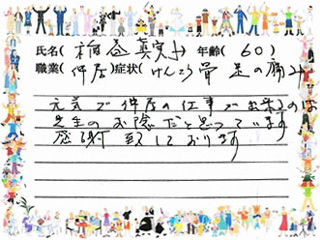 氏名(梅谷真実子)年齢(60)
職業(仲居)症状(けんこう骨 足の痛み)
元気で仲居の仕事が出来るのは
先生のお陰だと思っています
感謝致しております